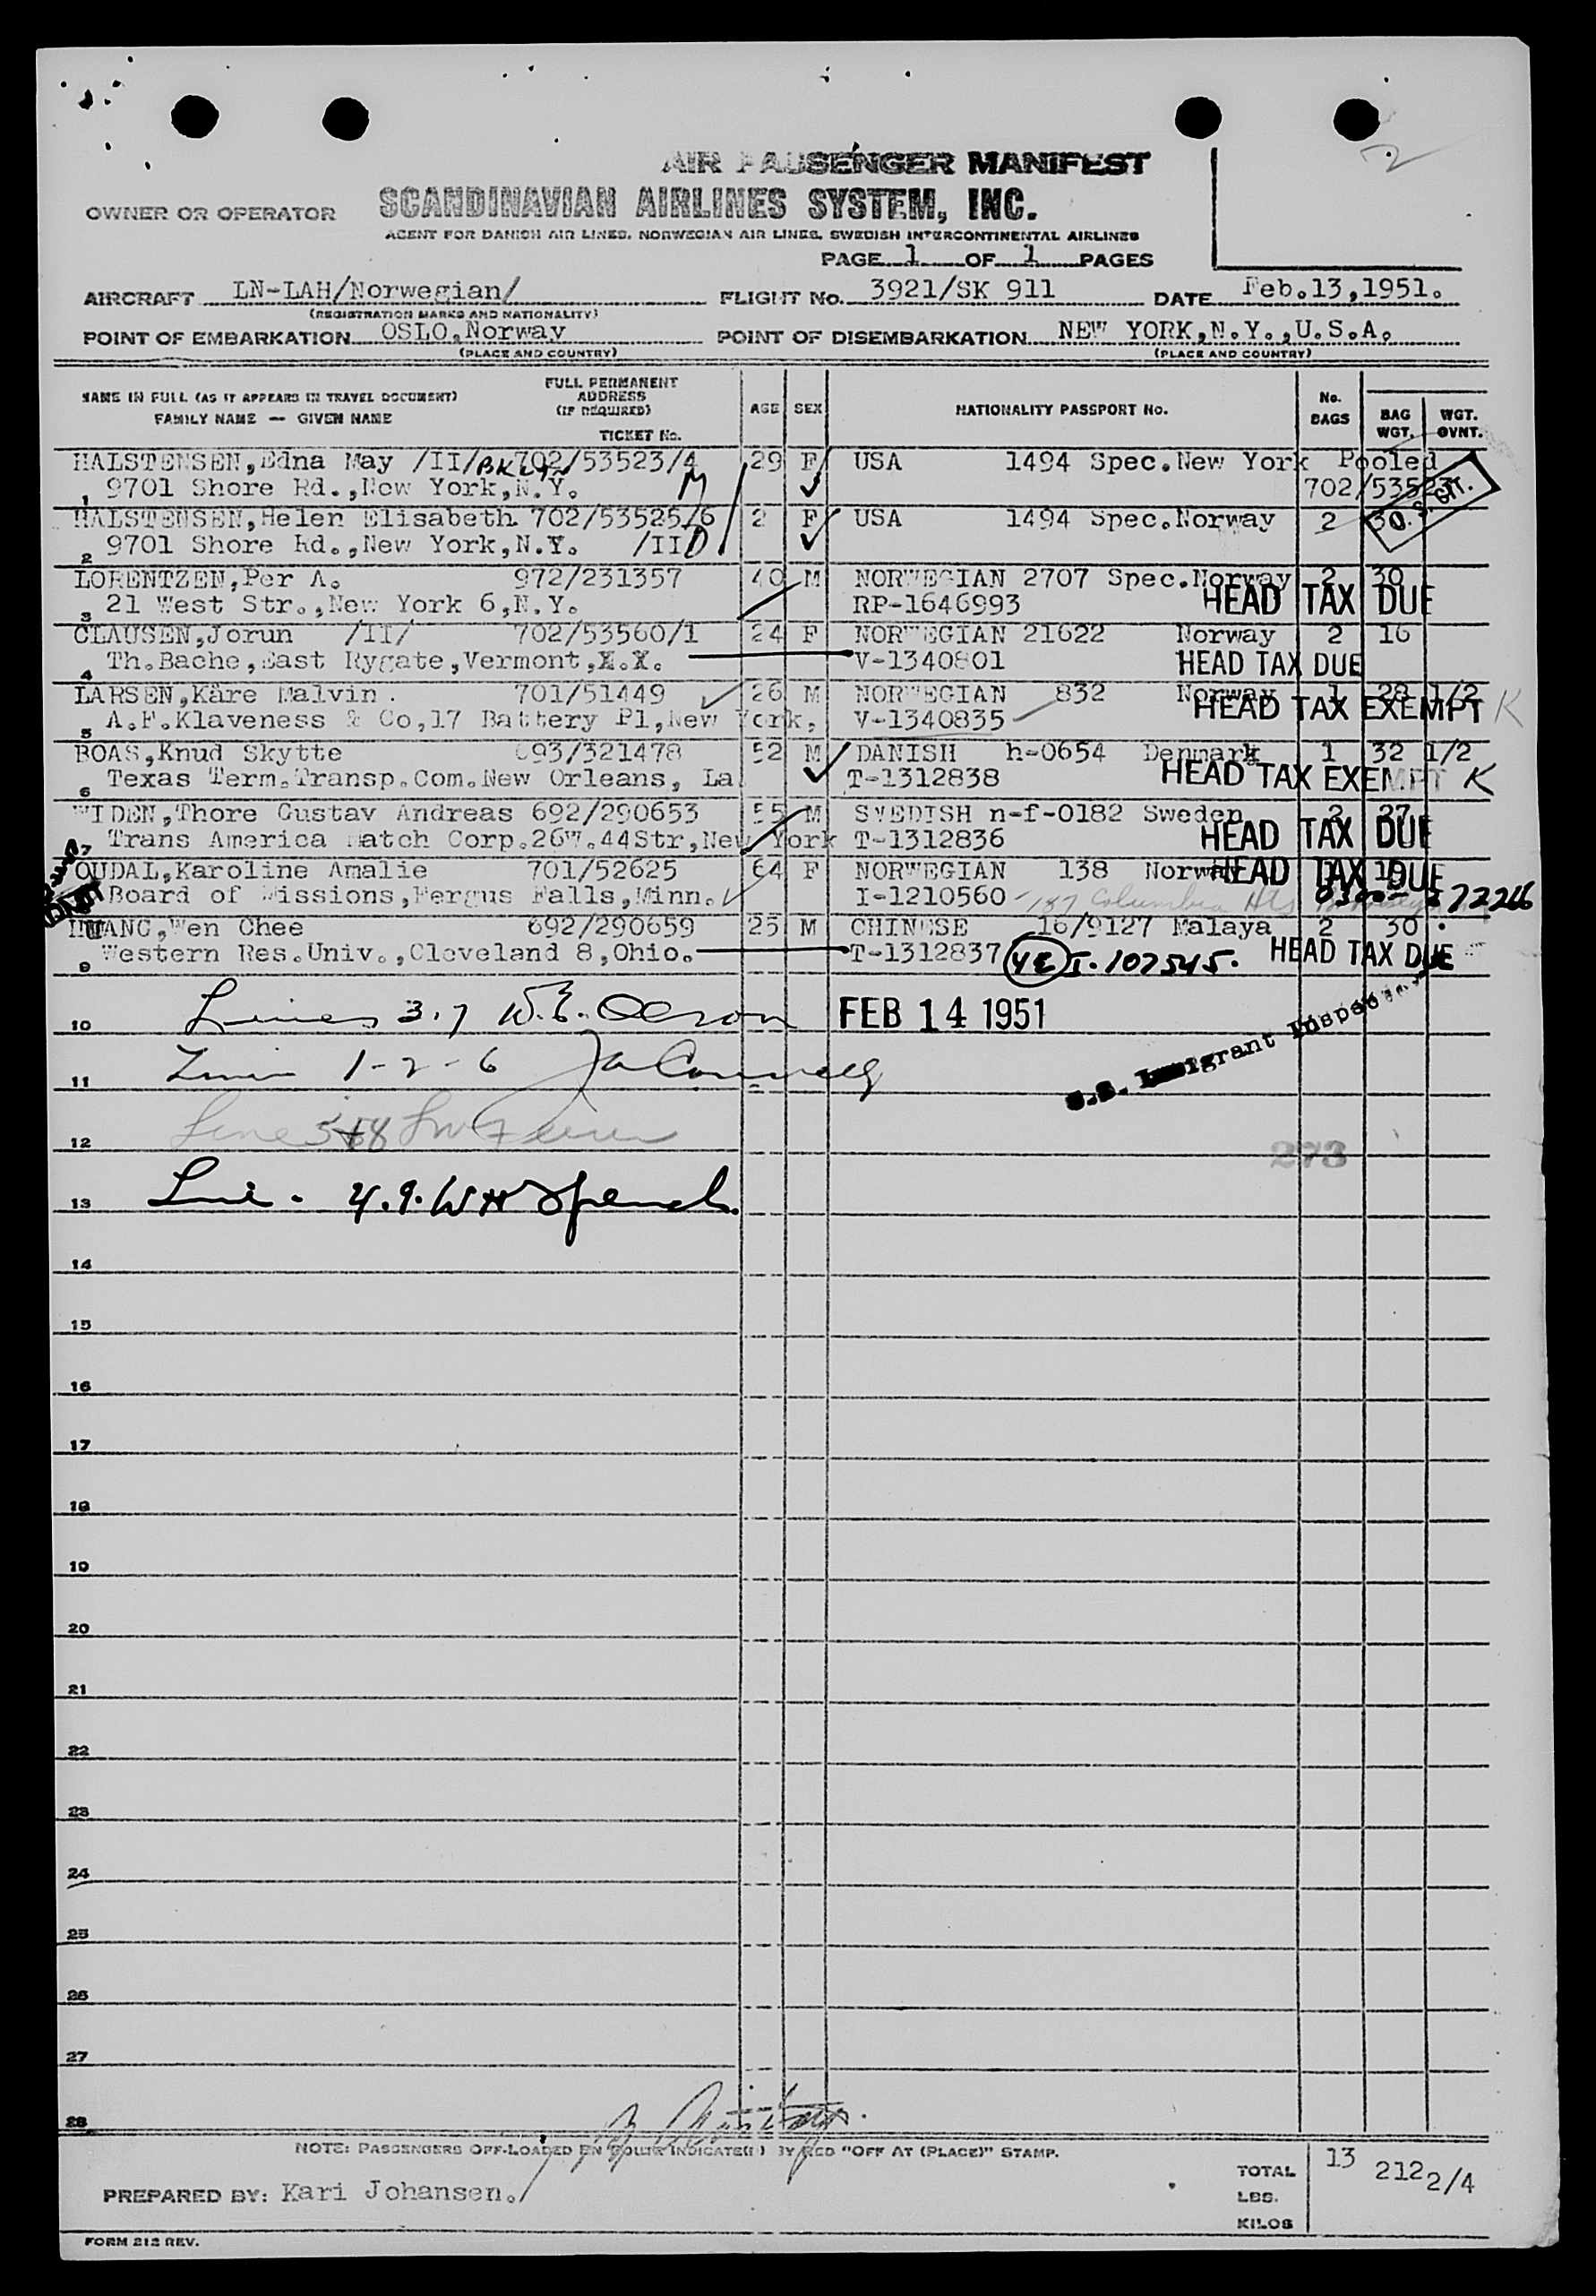 2
AIR PASSENGER MANIFEST
OWNER OR OPERATOR SCANDINAVIAN AIRLINES SYSTEM, INC.
AGENT FOR DANISH AIR LINES, NORWEGIAN AIR LINES, SWEDISH INTERCONTINENTAL AIRLINES
PAGE 1 OF 1 PAGES
AIRCRAFT LN-LAH/Norwegian/ FLIGHT No. 3921/SK 911 DATE Feb.13,1951.
(REGISTRATION MARKS AND NATIONALITY)
POINT OF EMBARKATION OSLO,Norway POINT OF DISEMBARKATION NEW YORK,N.Y.,U.S.A.
(PLACE AND COUNTRY) (PLACE AND COUNTRY)
NAME IN FULL (AS IT APPEARS IN TRAVEL DOCUMENT) FAMILY NAME — GIVEN NAME
FULL PERMANENT ADDRESS (IF REQUIRED) TICKET No.
AGE SEX NATIONALITY PASSPORT No. No. BAGS BAG WGT. WGT. OVNT.
HALSTENSEN,Edna May /II/ BKLYN 702/53523/4 29 F USA 1494 Spec.New York Pooled
1 9701 Shore Rd.,New York,N.Y. M 702/53523
HALSTENSEN,Helen Elisabeth 702/53525/6 2 F USA 1494 Spec.Norway 2 30 U.S. CIT.
2 9701 Shore Rd.,New York,N.Y. /II D
LORENTZEN,Per A. 972/231357 40 M NORWEGIAN 2707 Spec.Norway 2 30
3 21 West Str.,New York 6,N.Y. RP-1646993 HEAD TAX DUE
CLAUSEN,Jorun /II/ 702/53560/1 24 F NORWEGIAN 21622 Norway 2 16
4 Th.Bache,East Rygate,Vermont,X.X. V-1340801 HEAD TAX DUE
LARSEN,Käre Malvin. 701/51449 26 M NORWEGIAN 832 Norway 1 28 1/2
5 A.F.Klaveness & Co,17 Battery Pl,New York, V-1340835 HEAD TAX EXEMPT K
BOAS,Knud Skytte 693/321478 52 M DANISH h-0654 Denmark 1 32 1/2
6 Texas Term.Transp.Com.New Orleans, La T-1312838 HEAD TAX EXEMPT K
WIDEN,Thore Gustav Andreas 692/290653 55 M SWEDISH n-f-0182 Sweden 2 27
7 Trans America Match Corp.26W.44Str,New York T-1312836 HEAD TAX DUE
OUDAL,Karoline Amalie 701/52625 64 F NORWEGIAN 138 Norway HEAD TAX DUE
Board of Missions,Fergus Falls,Minn. I-1210560 187 Columbia Hts
HUANG,Wen Chee 692/290659 25 M CHINESE 16/9127 Malaya 2 30
9 Western Res.Univ.,Cleveland 8,Ohio. T-1312837 I-107545. HEAD TAX DUE
10 Lines 3.7 W.E. Olson FEB 14 1951
U.S. Immigrant Inspector
11 1-2-6
12 Line 5+8 273
13 4.9. WH
14
15
16
17
18
19
20
21
22
23
24
25
26
27
28
NOTE: PASSENGERS OFF-LOADED EN ROUTE INDICATED BY RED "OFF AT (PLACE)" STAMP.
PREPARED BY: Kari Johansen./ TOTAL 13 212 2/4
LBS.
KILOS
FORM 212 REV.